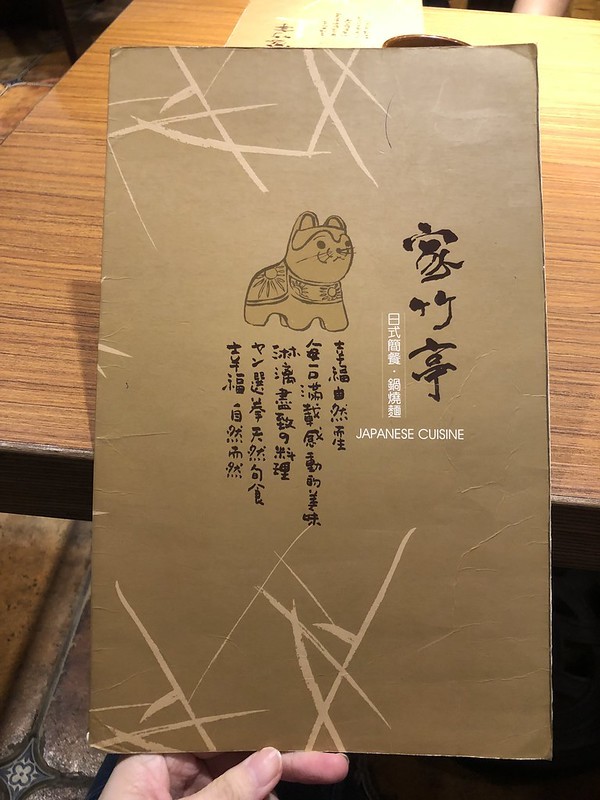 家竹亭
日式簡餐·鍋燒麵
JAPANESE CUISINE
幸福自然產
每一口滿載感動的美味
淋漓盡致の料理
ヤン選拳天然旬食
幸福。自然而然